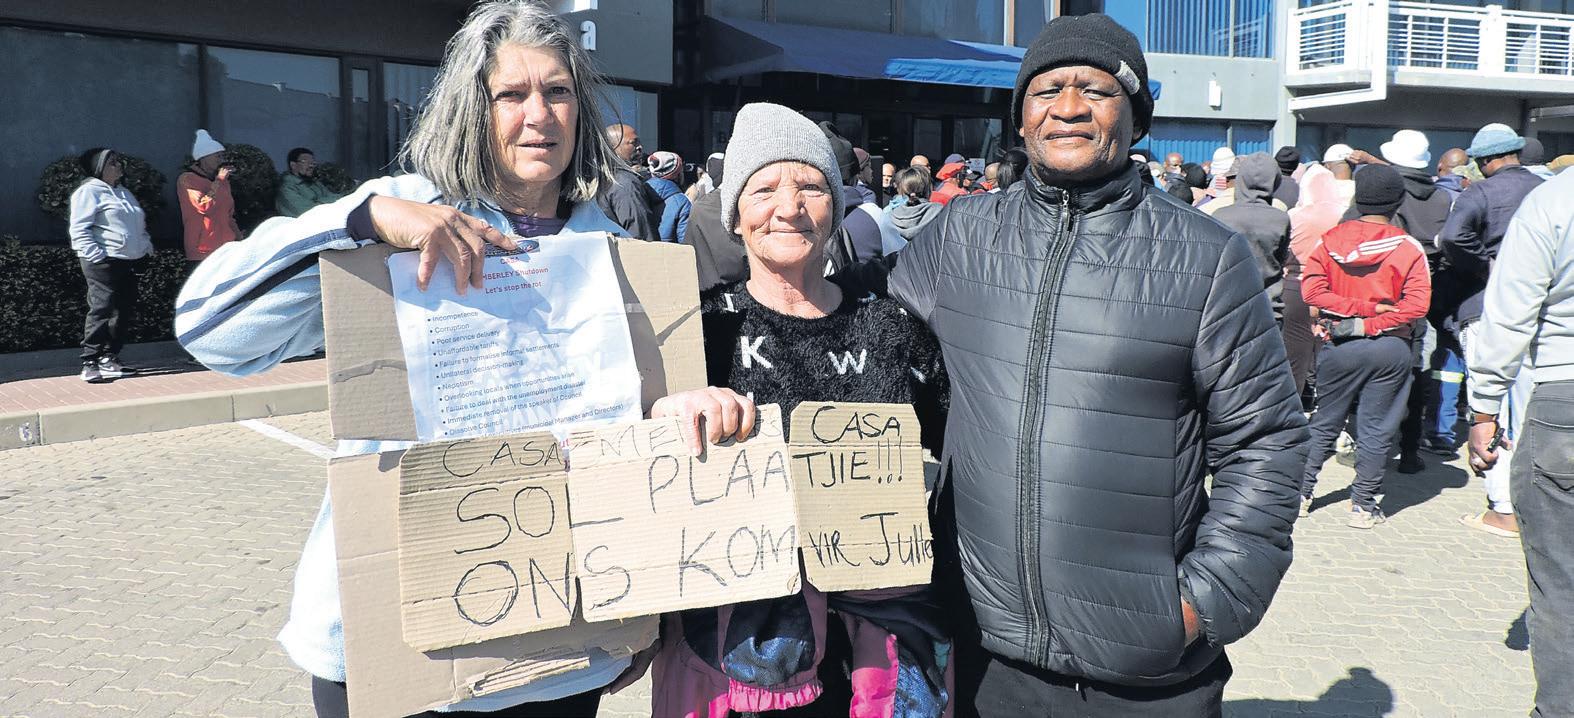 a
CASA
MBERLEY Shutdown
Let's stop the rot
• Incompetence
• Corruption
• Poor service delivery
• Unaffordable tariffs
• Failure to formalise informal settlements
• Unilateral decision-making
• Nepotism
• Overlooking locals when opportunities arise
• Failure to deal with the unemployment disaster
• Immediate removal of the speaker of Council
• Dissolve Council
(Municipal Manager and Directors)
CASA
SOL PLAATJIE!!!
ONS KOM VIR Julle
CASA
K W